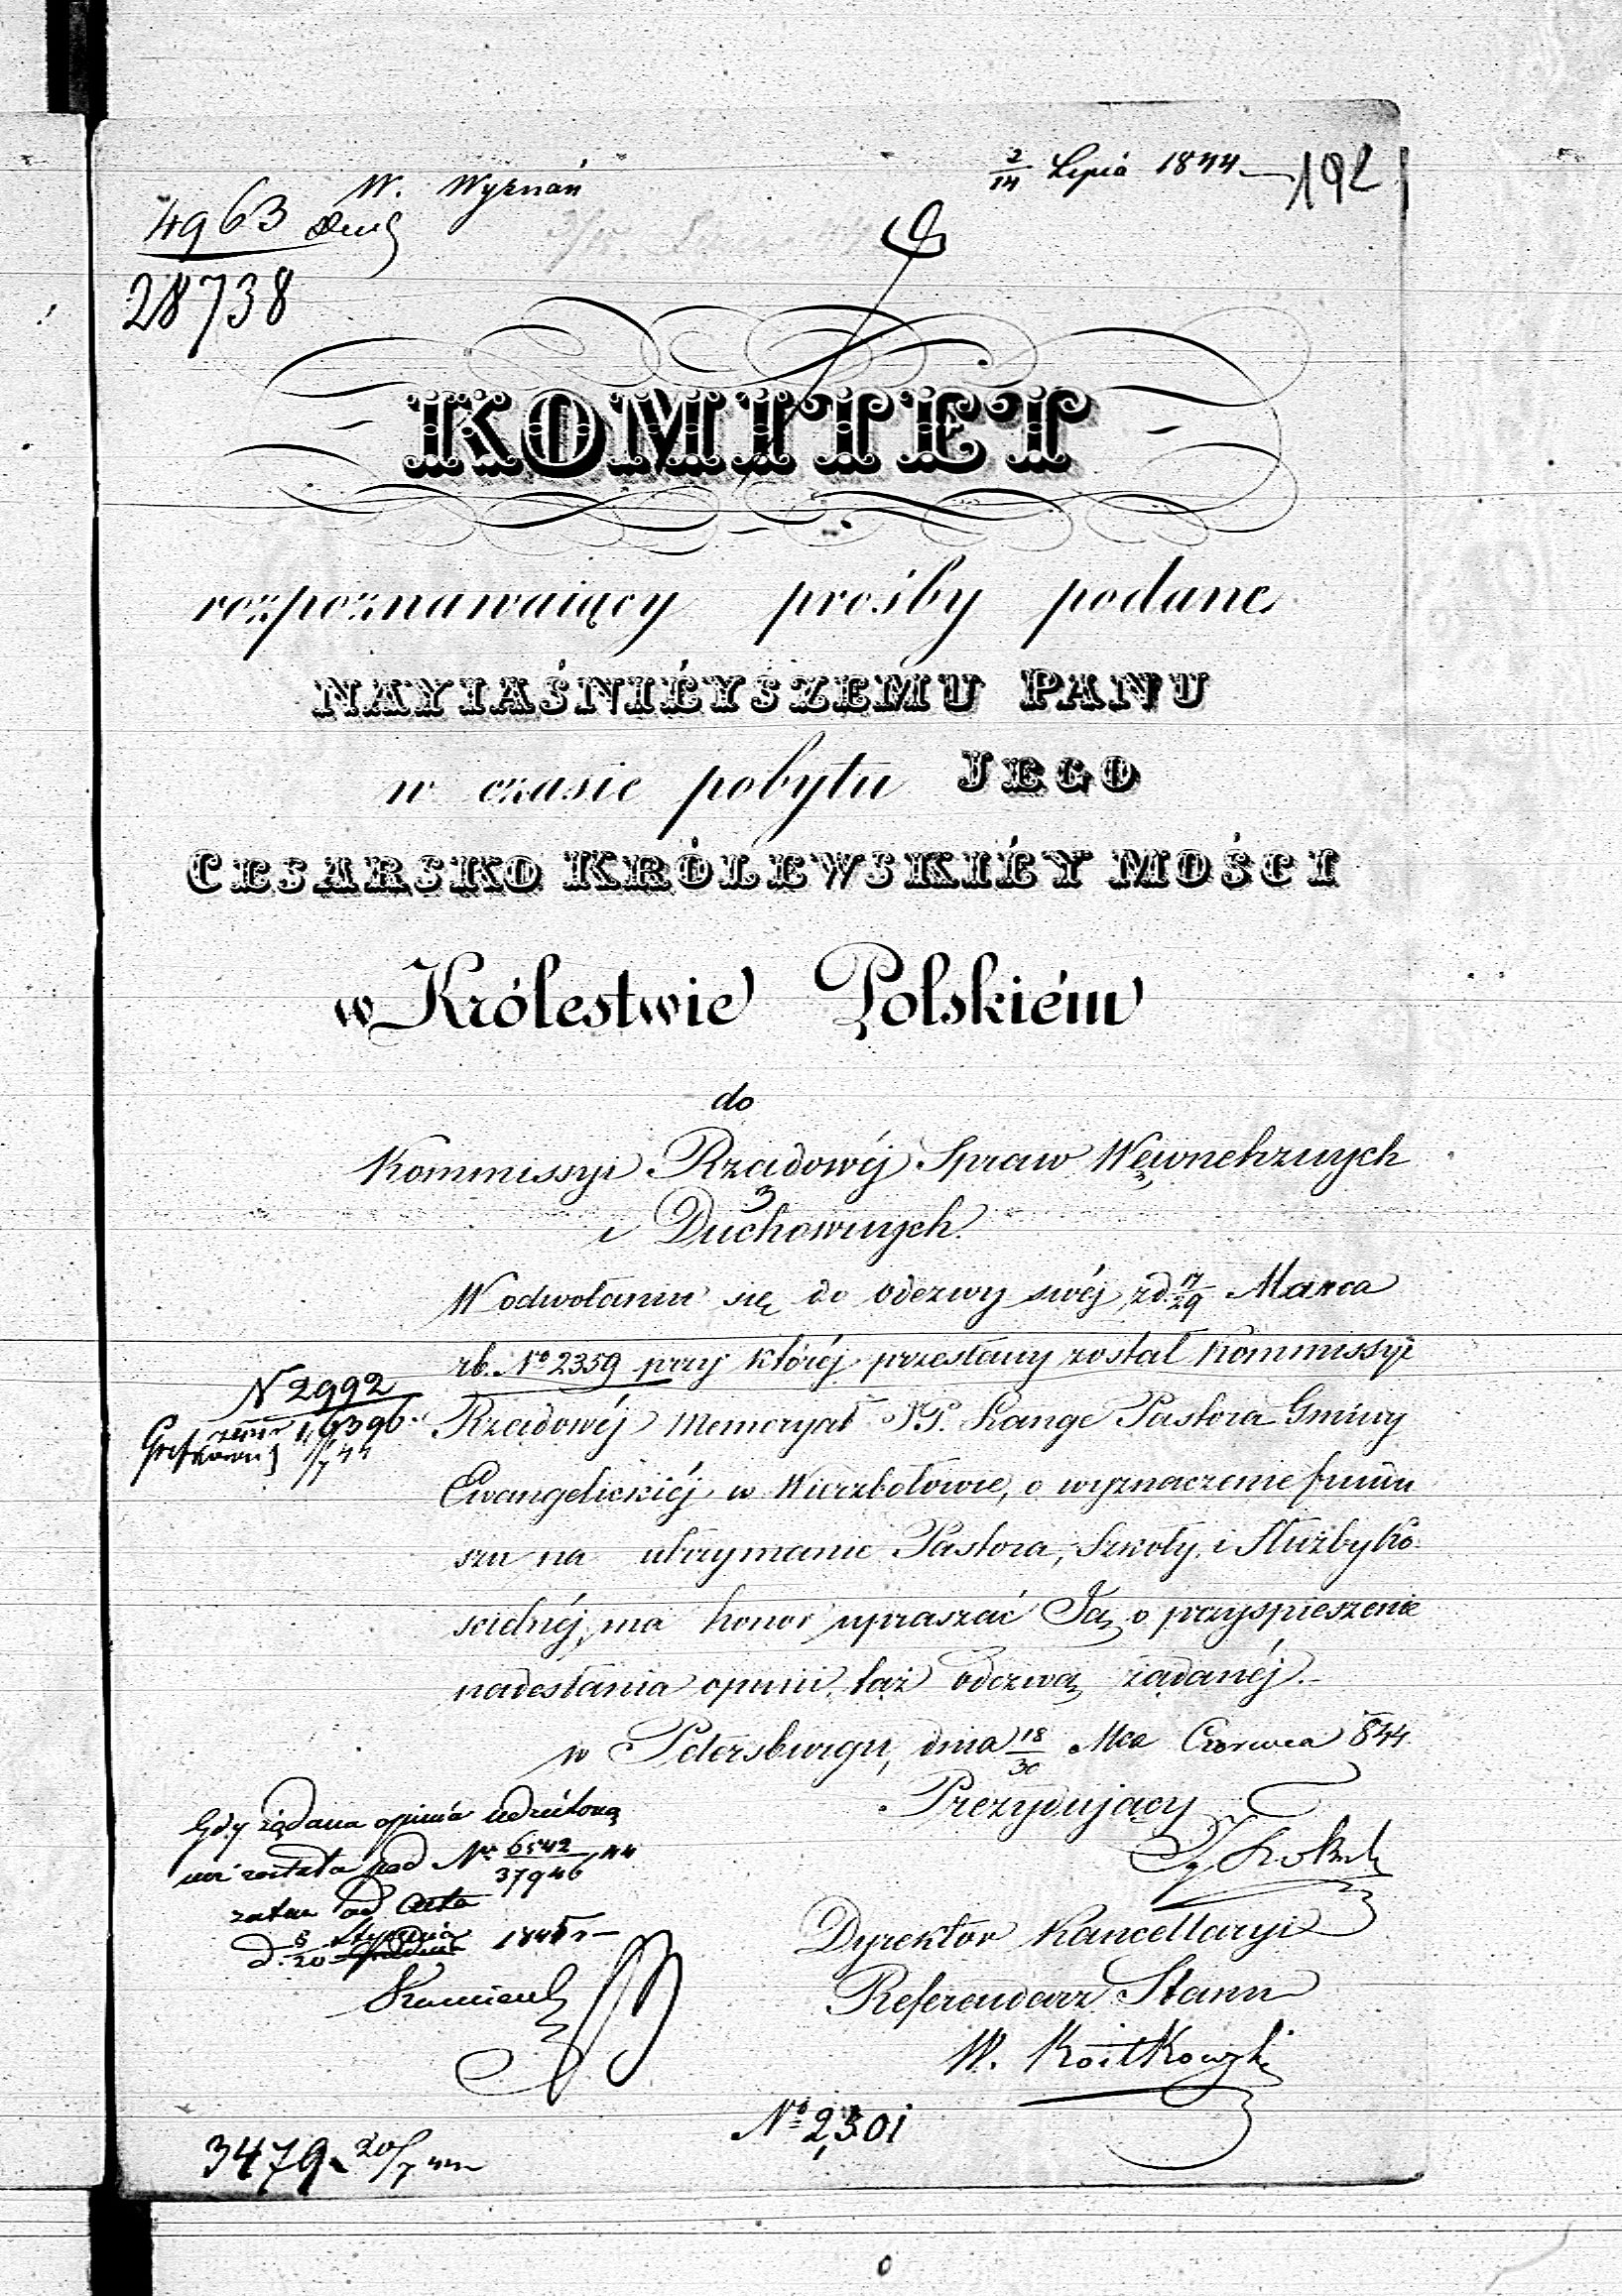 2/14 Lipca 1844
192
W. Wyznań
4963
28738
KOMITET
rozpoznawaiący prośby podane
NAYIAŚNIÉYSZEMU PANU
w czasie pobytu JEGO
CESARSKO KRÓLEWSKIÉY MOŚCI
w Królestwie Polskiém
do
Kommissyi Rządowéj Spraw Wewnętrznych
i Duchownych.
W odwołaniu się do odezwy swéj, z d. 17/29 Marca
rb. No 2359 przy któréj przesłany został Kommissyi
Rządowéj Memoryał JP. Lange Pastora Gminy
Ewangelickiéj w Wierzbołowie, o wyznaczenie fundu
szu na utrzymanie Pastora, Szkoły, i Służby Ko-
scielnéj, ma honor upraszać Ją o przyspieszenie
nadesłania opinii, tąż odezwą żądanéj.-
w Petersburgu, dnia 18/30 Mca Czerwca 844.
N 2992
16396
Prezydujący
Dyrektor Kancellaryi
Referendarz Stanu
Gdy żądana opinia udzieloną
już została pod No 6542/37946 /44
zatem ad acta
d. 8/20 Stycznia 1845 r
No 2,301
3479. 20/7 44